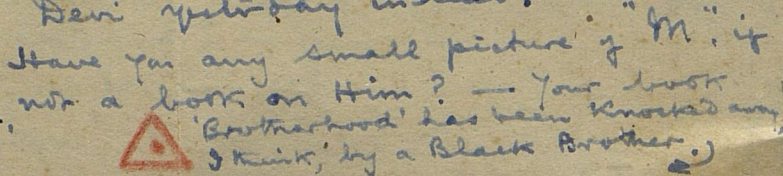 Devi yesterday
Have you any small picture of "M", if
not a book on Him? — Your book
'Brotherhood' has been knocked away,
I think, by a Black Brother.)